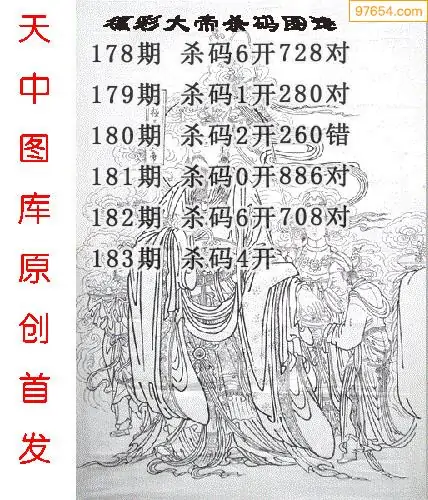 97654.com
福彩大帝杀码图谜
178期 杀码6开728对
179期 杀码1开280对
180期 杀码2开260错
181期 杀码0开886对
182期 杀码6开708对
183期 杀码4开
天中图库原创首发